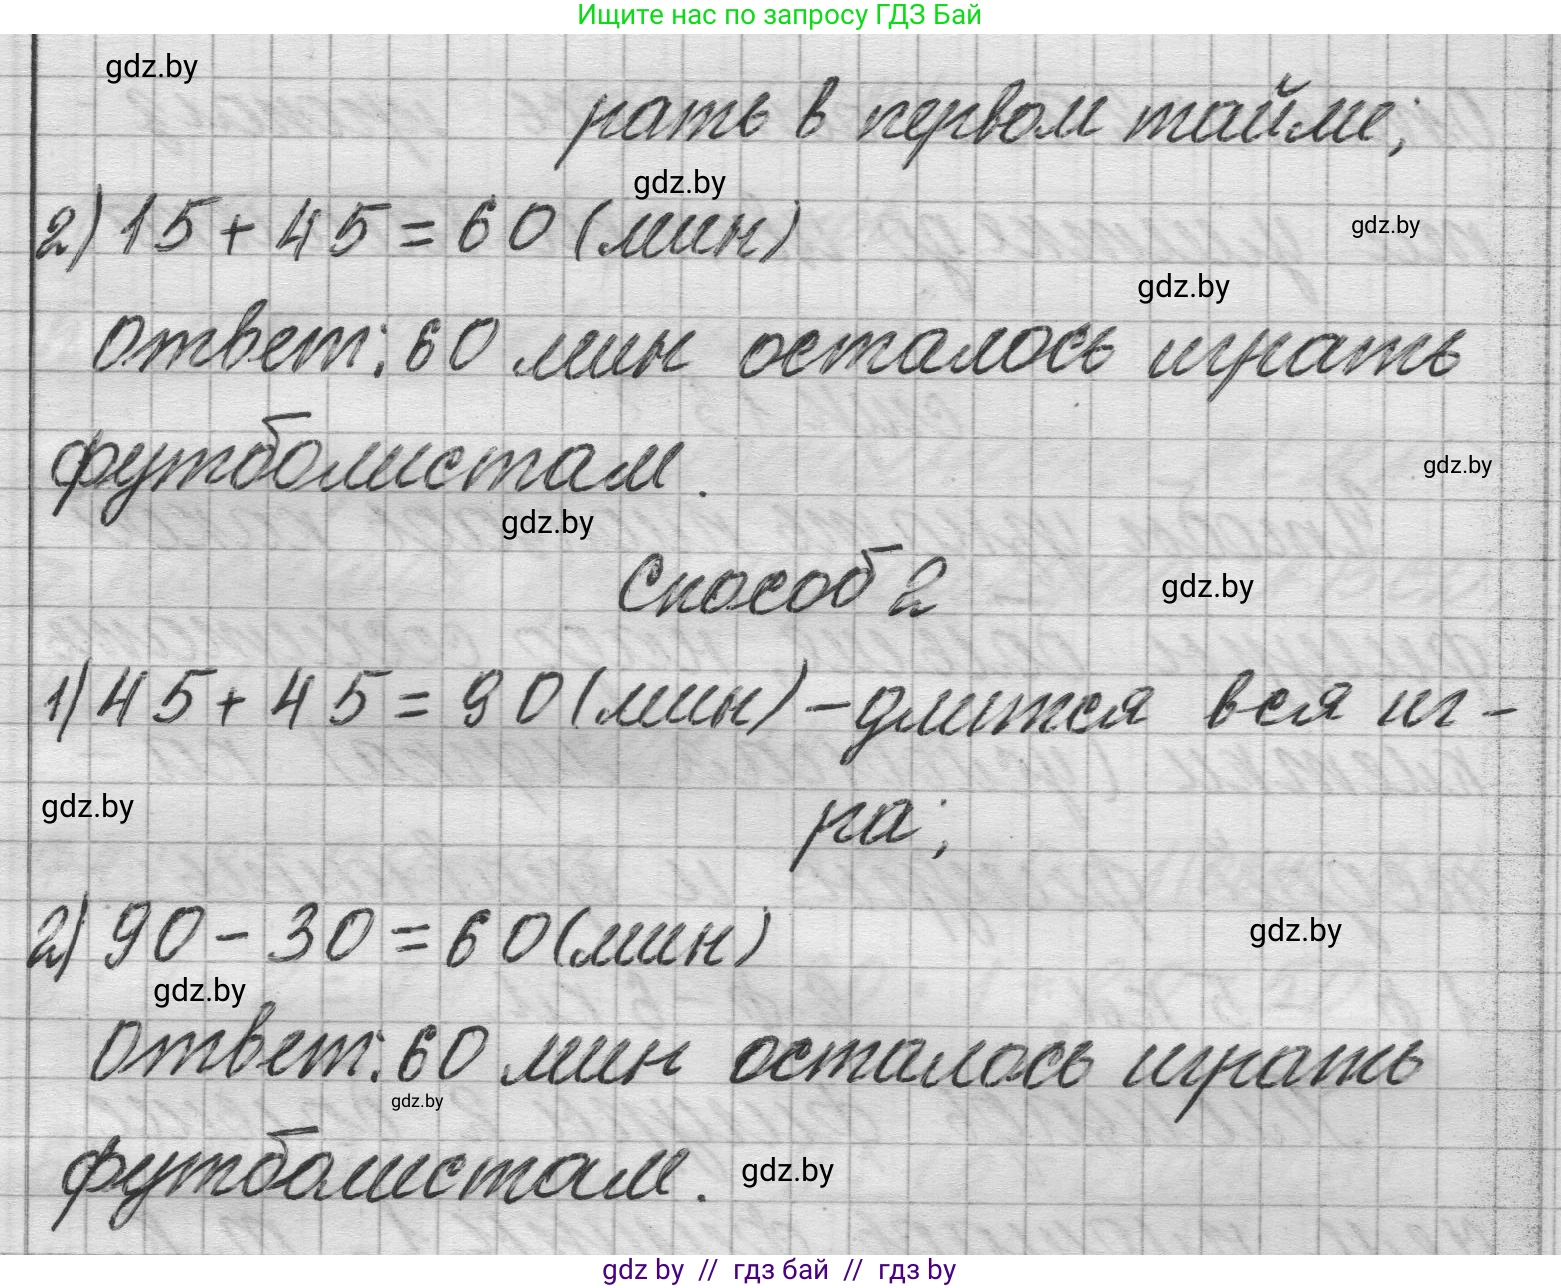 Ищите нас по запросу ГДЗ Бай
gdz.by
рать в первом тайме;
gdz.by
2) 15 + 45 = 60 (мин)
gdz.by
gdz.by
Ответ: 60 мин осталось играть
футболистам.
gdz.by
gdz.by
Способ 2
gdz.by
1) 45 + 45 = 90 (мин) – длится вся иг-
gdz.by
ра;
2) 90 - 30 = 60 (мин)
gdz.by
gdz.by
Ответ: 60 мин осталось играть
gdz.by
футболистам.
gdz.by
gdz by // гдз бай // гдз by